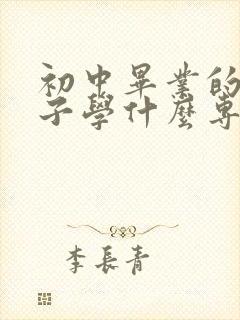 初中畢業的
子學什麼專
李長青